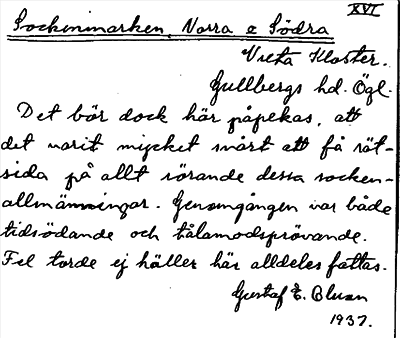 XVI
Sockenmarken, Norra e Södra
Vreta Kloster.
Gullbergs hd. Ögl.
Det bör dock här påpekas, att
det varit mycket svårt att få rät-
sida på allt rörande dessa socken-
allmänningar. Genomgången var både
tidsödande och tålamodsprövande.
Fel torde ej häller här alldeles fattas.
Gustaf E. Bluan
1937.